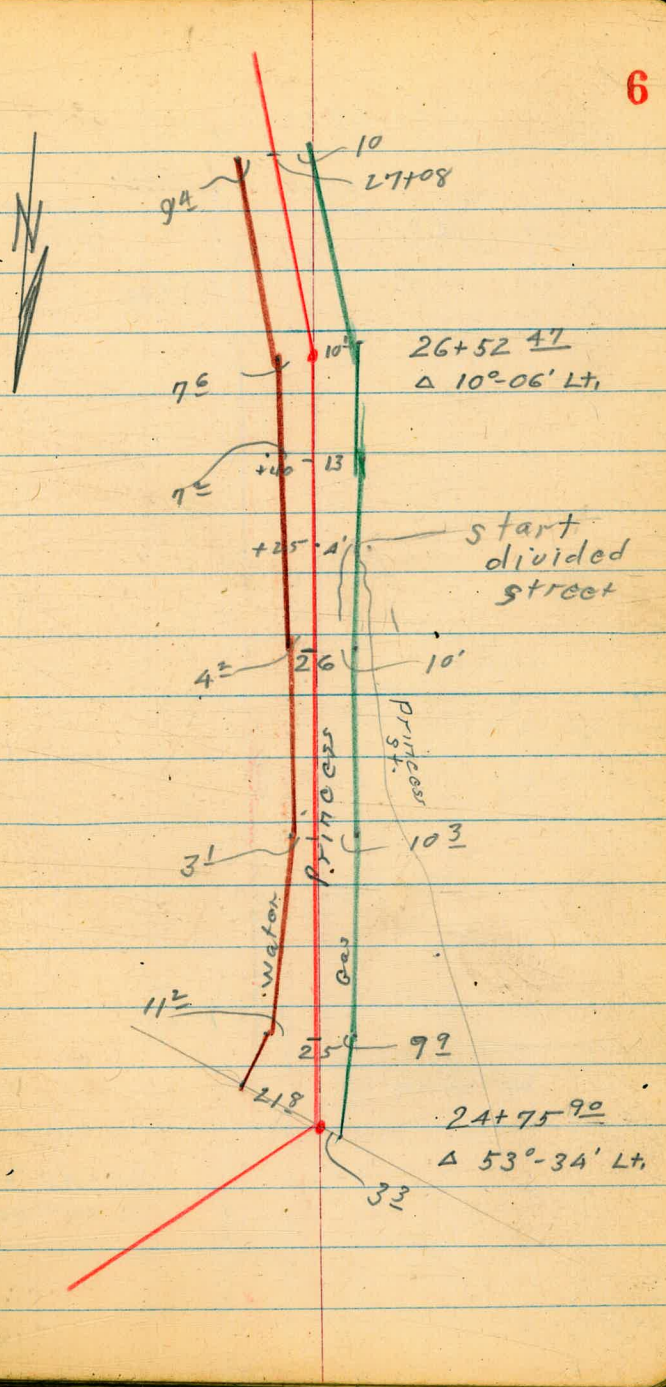 6
10
27+08
9 4
N
10'
26+52 47
Δ 10°-06' Lt.
7 6
+40
13
7
+25
4'
start
divided
street
26
10'
4 2
Princess
St.
Princess
3 1
10 3
Water
Gas
11 2
25
9 9
21 8
24+75 90
Δ 53°-34' Lt.
3 3